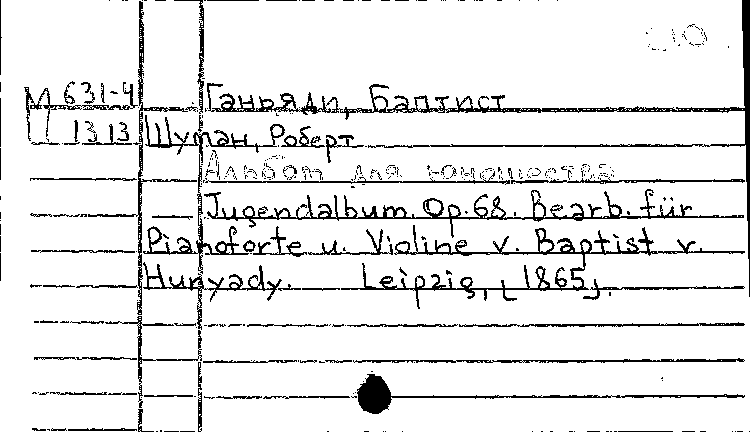 М 631-4 Ганьяди, Баптист
Ц 1313 Шуман, Роберт
Альбом для юношества
Jugendalbum. Op. 68. Bearb. für
Pianoforte u. Violine v. Baptist v.
Hunyady. Leipzig, [1865].